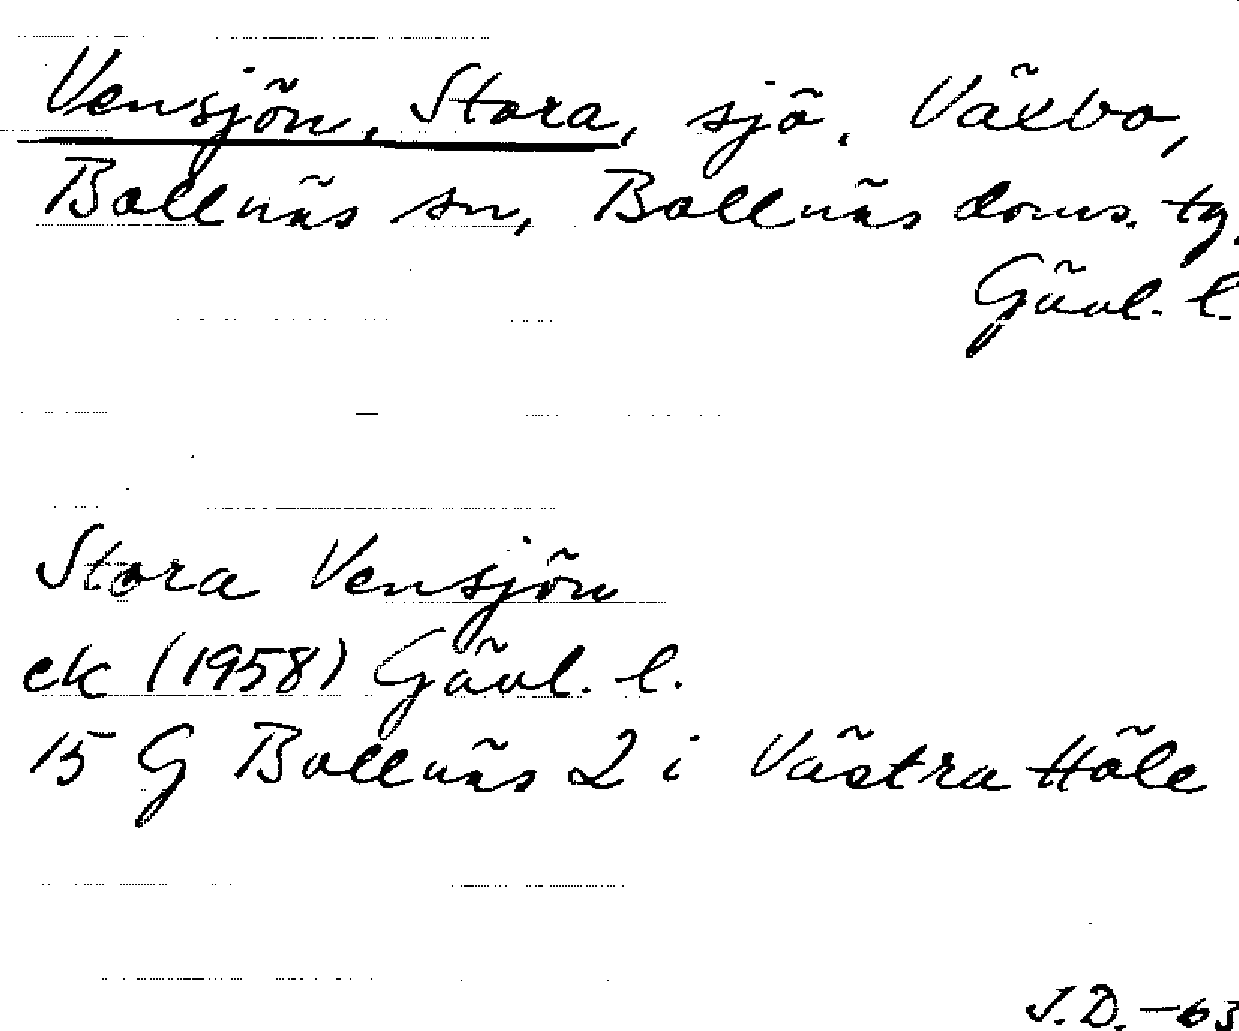 Vensjön, Stora, sjö. Växbo,
Bollnäs sn, Bollnäs doms. tg.
Gävl. l.
Stora Vensjön
ek (1958) Gävl. l.
15 G Bollnäs 2 i Västra Höle
J.D. -63